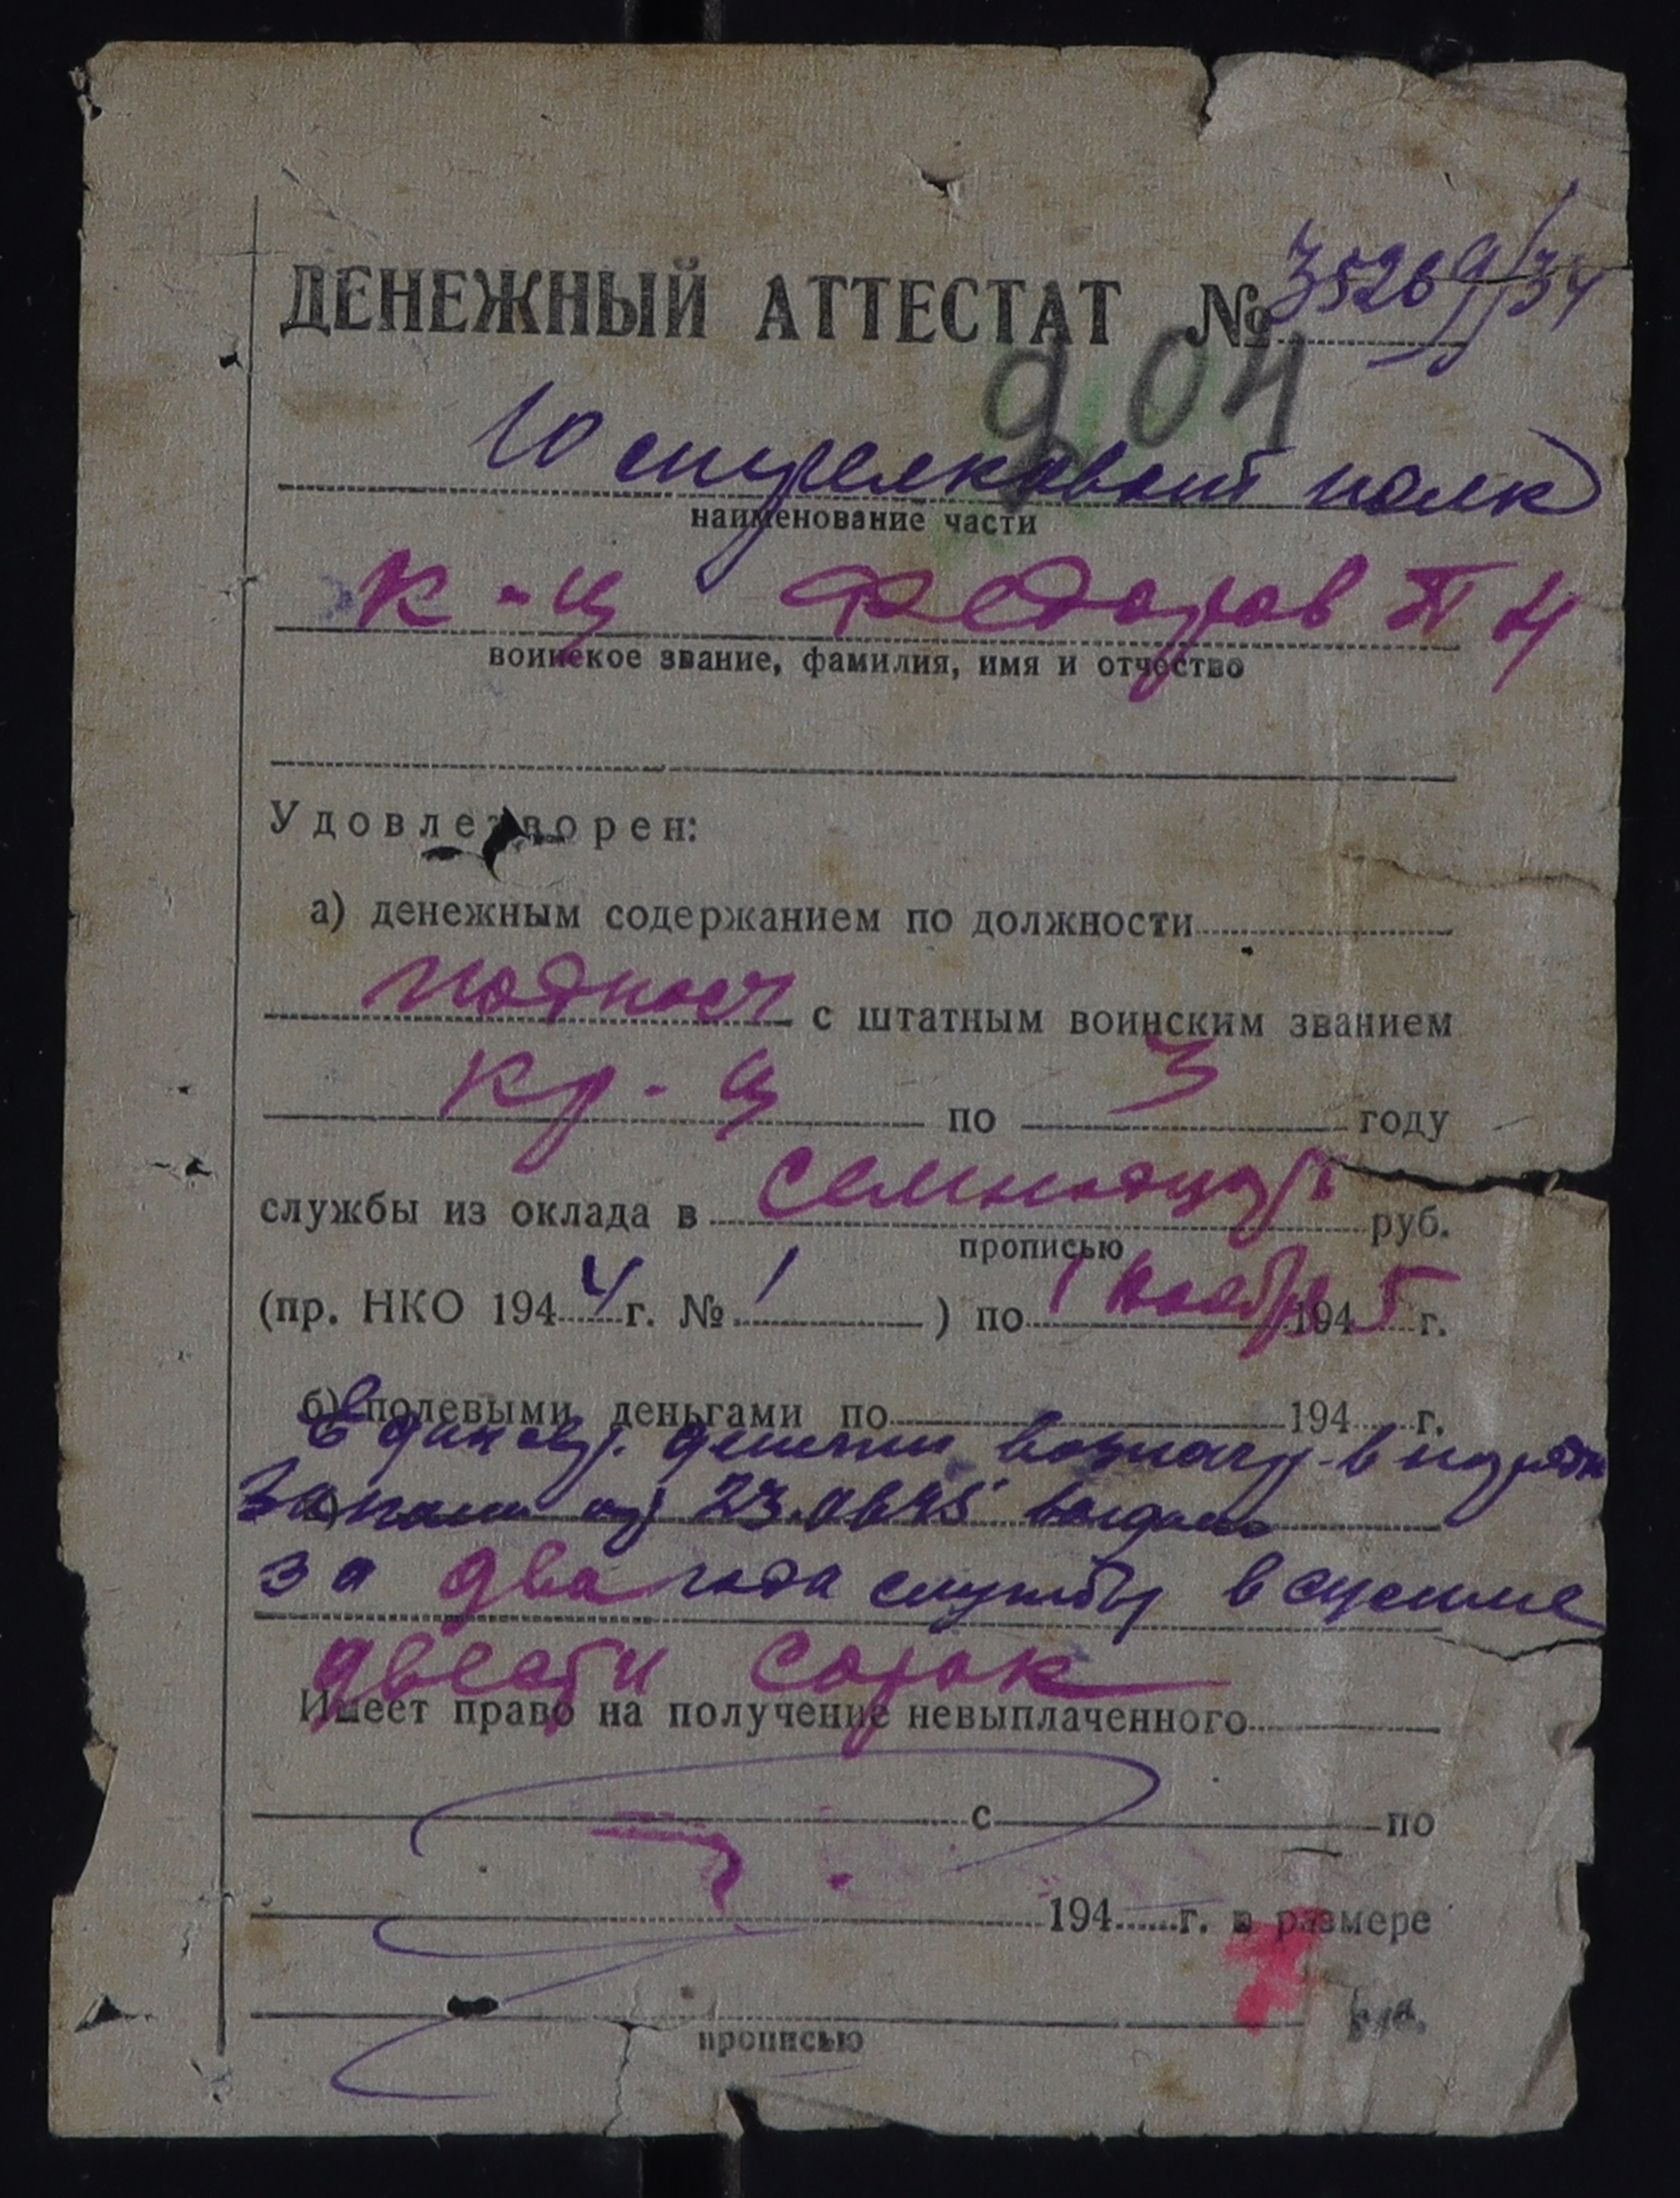 ДЕНЕЖНЫЙ АТТЕСТАТ № 35269/34
904
10 стрелковый полк
наименование части
к-ц Федоров П И
воинское звание, фамилия, имя и отчество
Удовлетворен:
а) денежным содержанием по должности
поднос с штатным воинским званием
кр-ц по 3 году
службы из оклада в семнадцать руб.
прописью
(пр. НКО 1944 г. № 1 ) по 1 ноября 1945 г.
б) полевыми деньгами по 194 г.
Единовр. денежн вознагр. в порядке
закона от 23.06.45 выдано
за два года службы в сумме
двести сорок
Имеет право на получение невыплаченного
с по
194 г. в размере
руб.
прописью